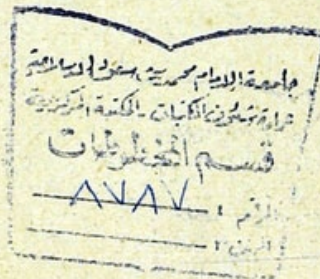 جامعة الإمام محمد بن سعود الإسلامية
عمادة شئون المكتبات - المكتبة المركزية
قسم المخطوطات
الرقم : ٨٧٨٧